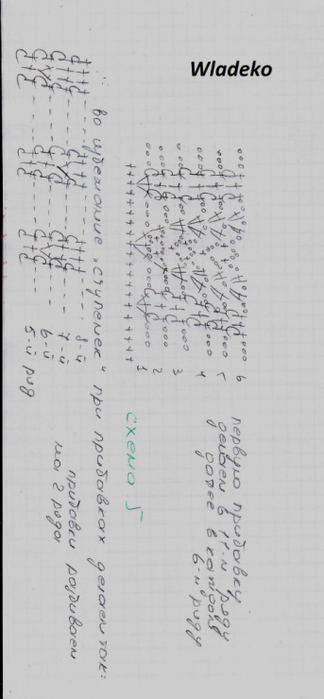 Wladeko
первую прибавку
делаем в 11-м ряду
далее в каждом
6-м ряду
6
5
4
3
2
1
схема 5
во избежание "ступенек" при прибавках делаем так:
8-й
7-й
6-й
5-й ряд
прибавки разбиваем
на 2 ряда